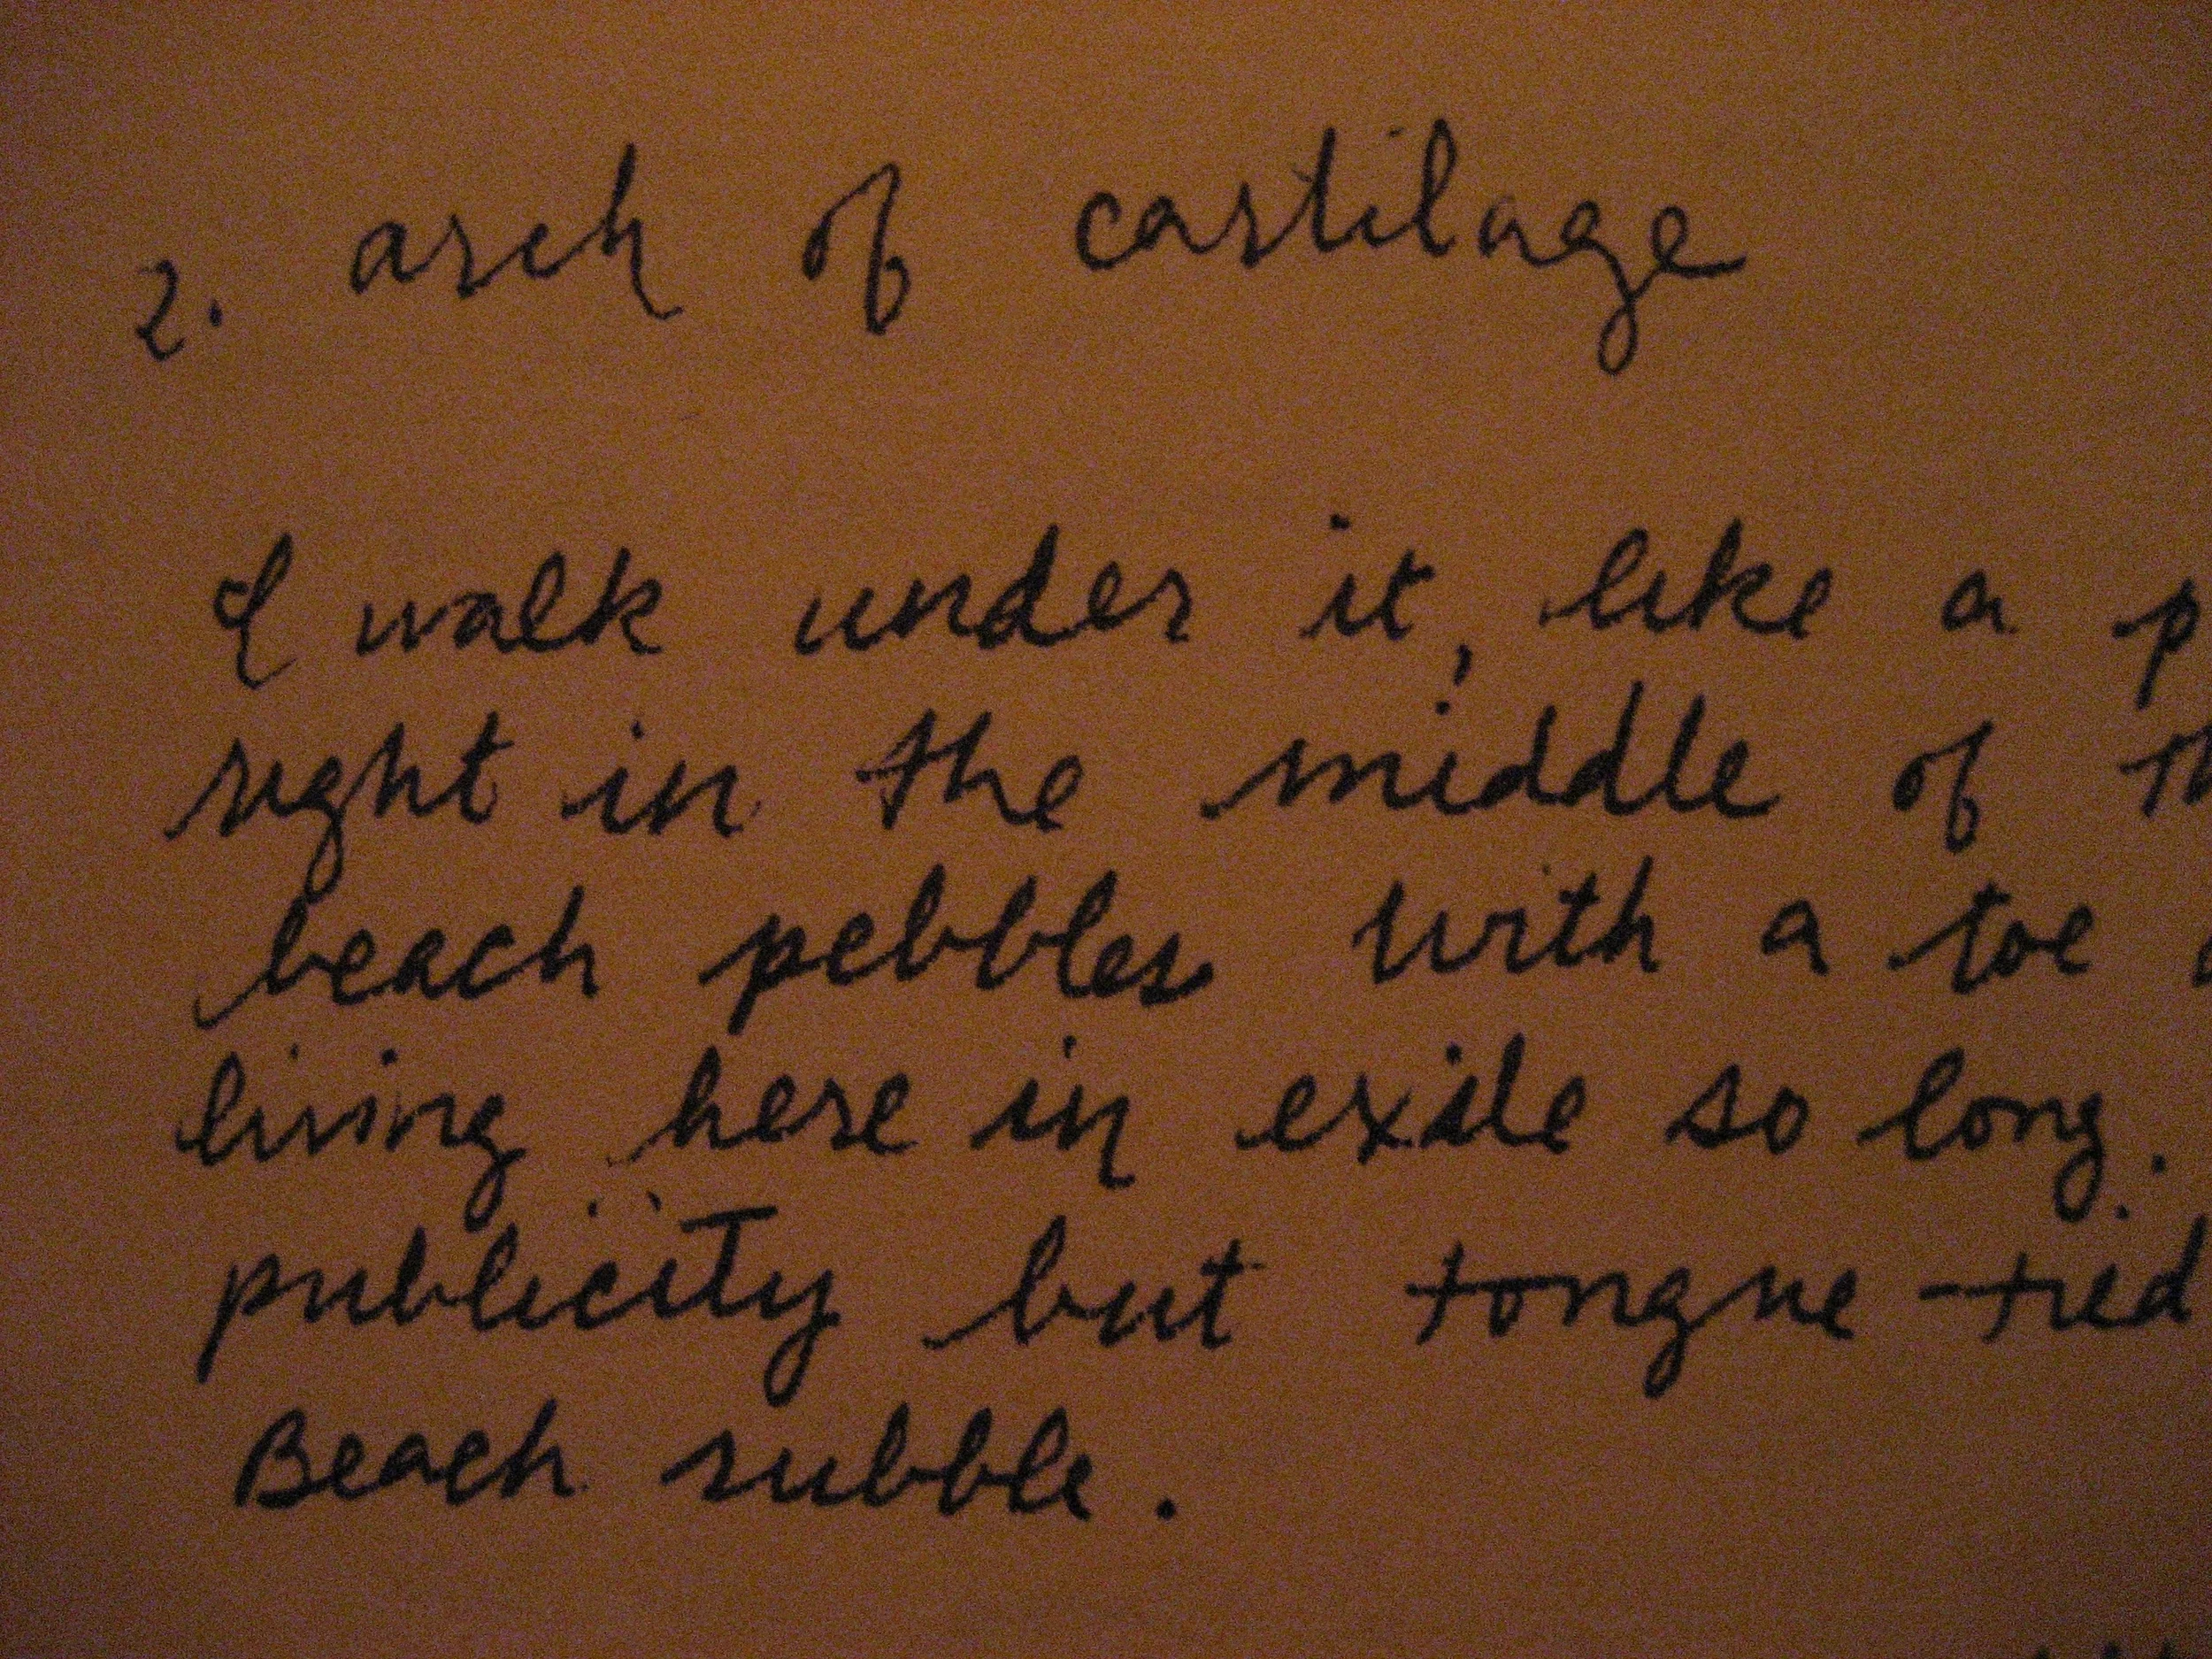 2. arch of cartilage
I walk under it, like a p
right in the middle of th
beach pebbles with a toe
living here in exile so long.
publicity but tongue-tied
Beach rubble.